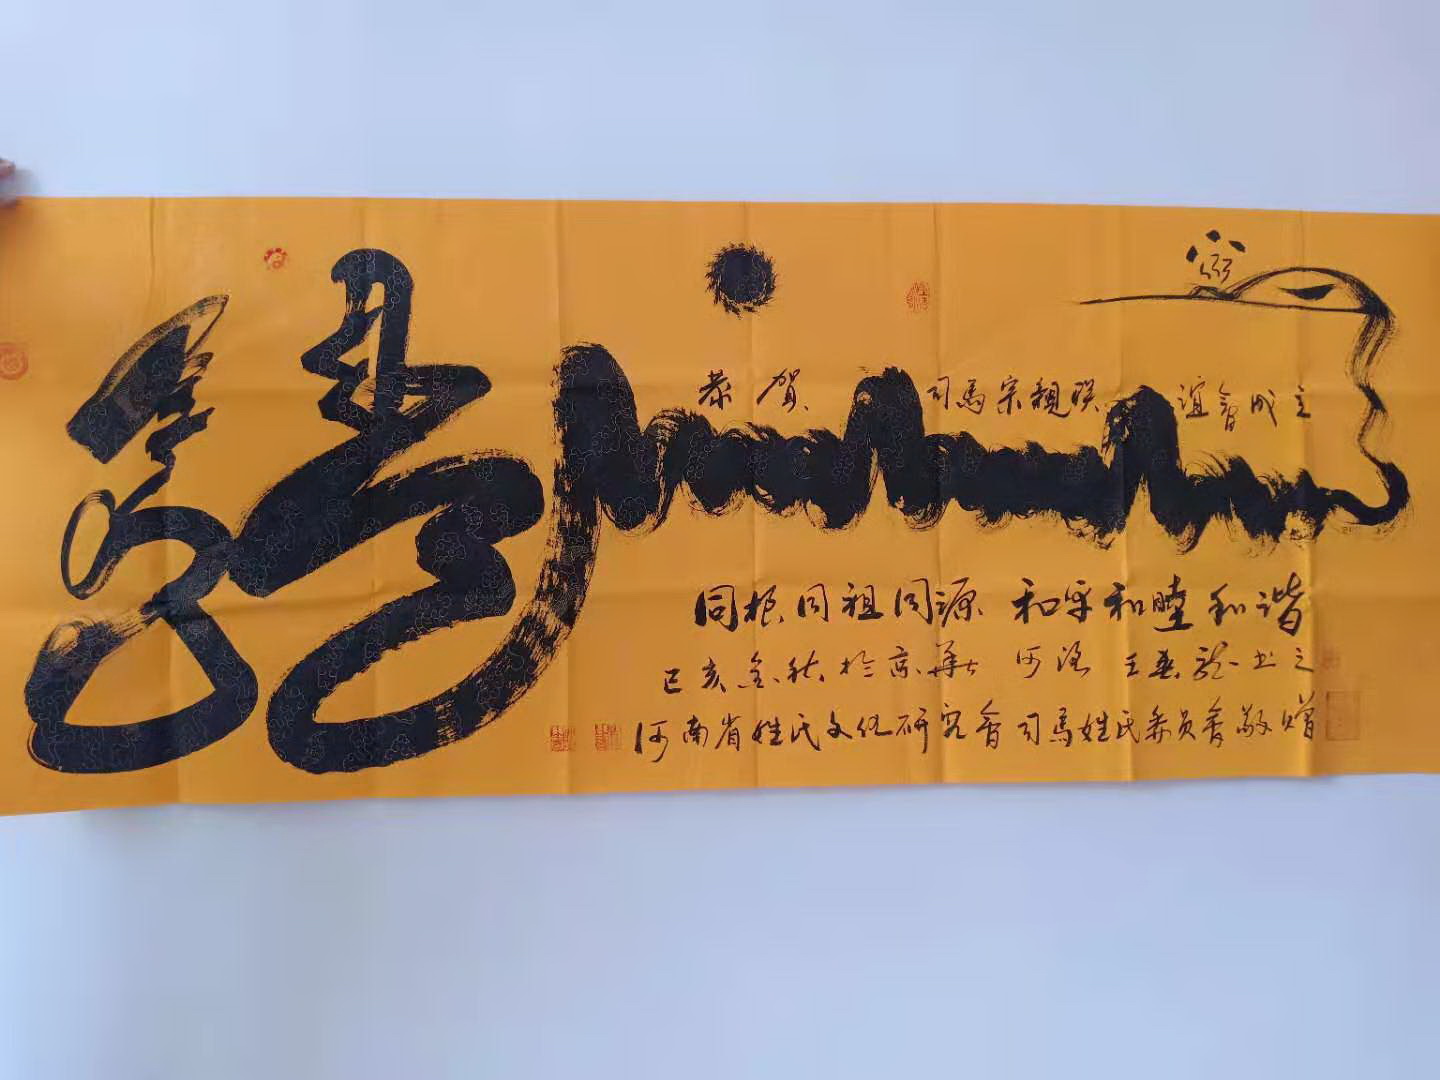 龍
恭贺 司馬宗親联谊會成立
同根同祖同源 和平和睦和谐
己亥金秋於京華 河洛 王春龙书之
河南省姓氏文化研究會司馬姓氏委员會敬赠